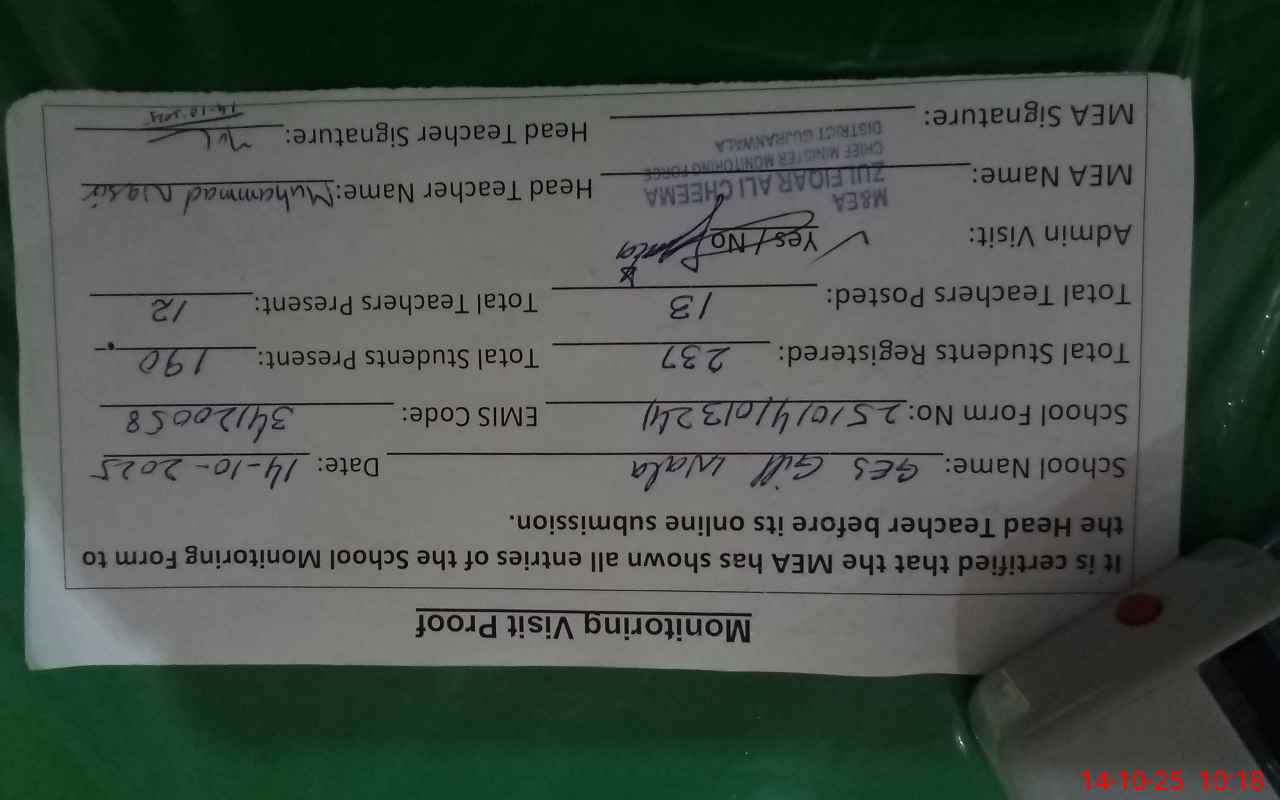 Monitoring Visit Proof
It is certified that the MEA has shown all entries of the School Monitoring Form to
the Head Teacher before its online submission.
School Name: GES Gill wala Date: 14-10-2025
School Form No: 2510141013241 EMIS Code: 34120058
Total Students Registered: 237 Total Students Present: 190
Total Teachers Posted: 13 Total Teachers Present: 12
Admin Visit: Yes / No
M&EA
MEA Name: ZULFIQAR ALI CHEEMA Head Teacher Name: Muhammad Nasir
CHIEF MINISTER MONITORING FORCE
DISTRICT GUJRANWALA
MEA Signature: Head Teacher Signature:
14-10-2025
14-10-25 10:18